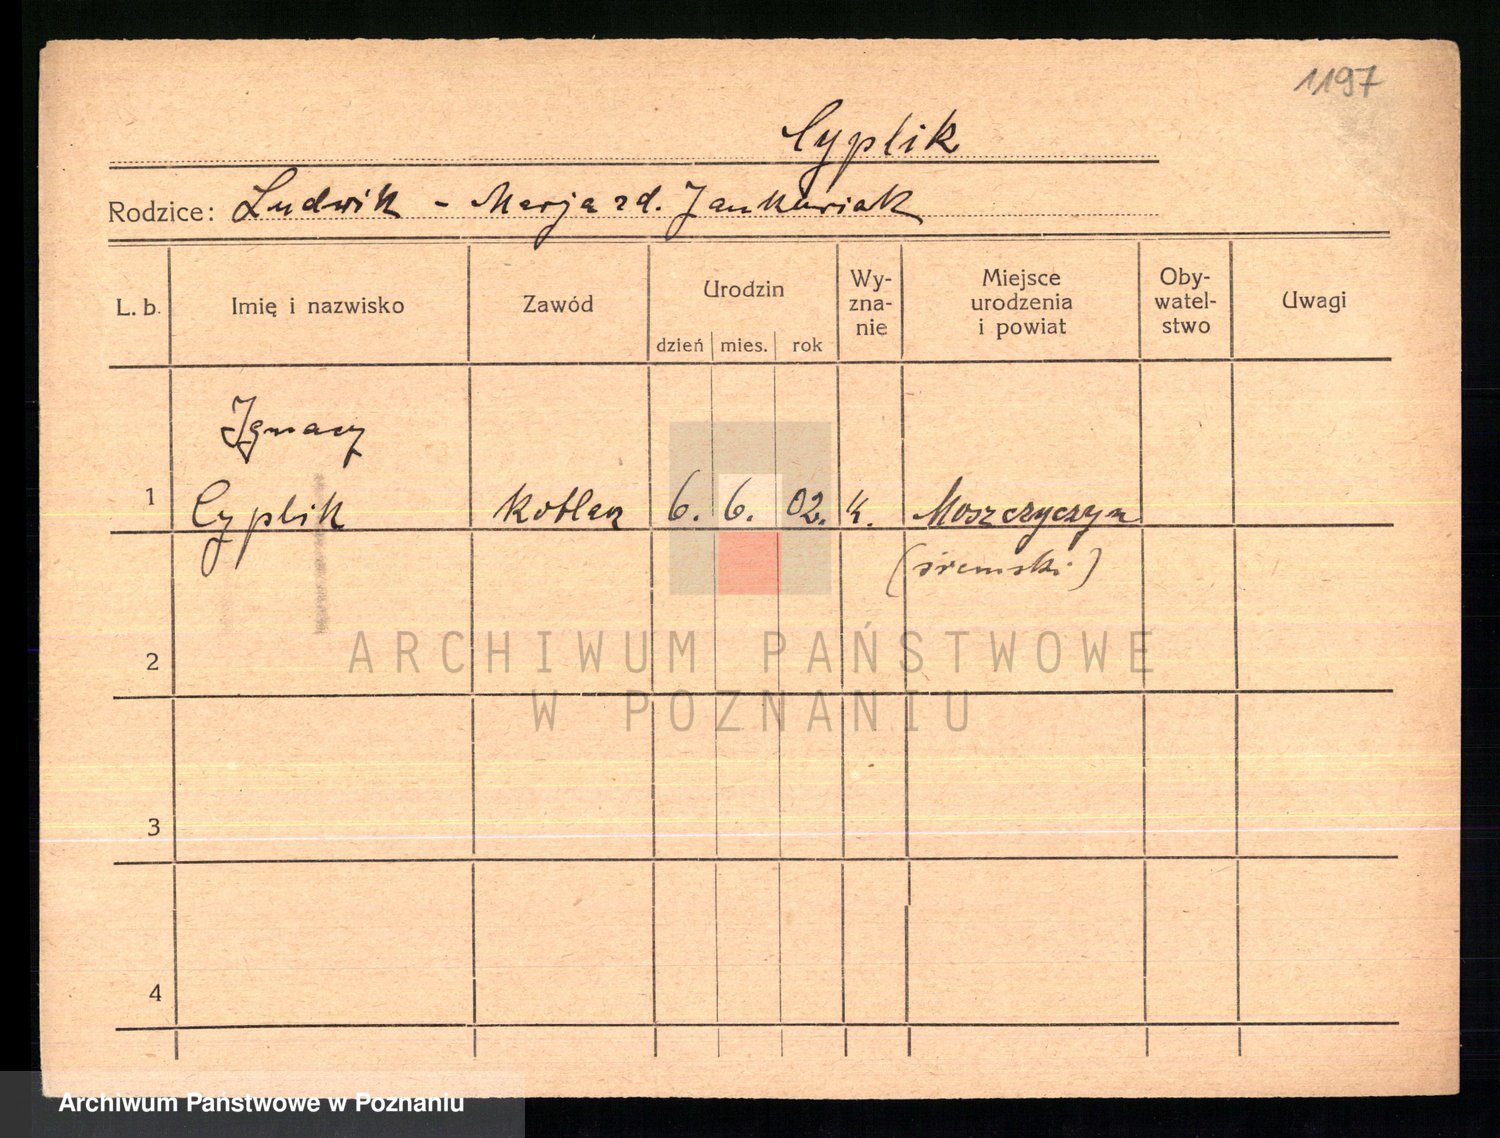 1197
Cyplik
Rodzice: Ludwik - Marja zd. Jankowiak
L. b. Imię i nazwisko Zawód Urodzin dzień mies. rok Wy-zna-nie Miejsce urodzenia i powiat Oby-watel-stwo Uwagi
Ignacy
1 Cyplik kotlarz 6. 6. 02. k. Moszczyczyn
(śremski)
2
3
4
ARCHIWUM PAŃSTWOWE
W POZNANIU
Archiwum Państwowe w Poznaniu